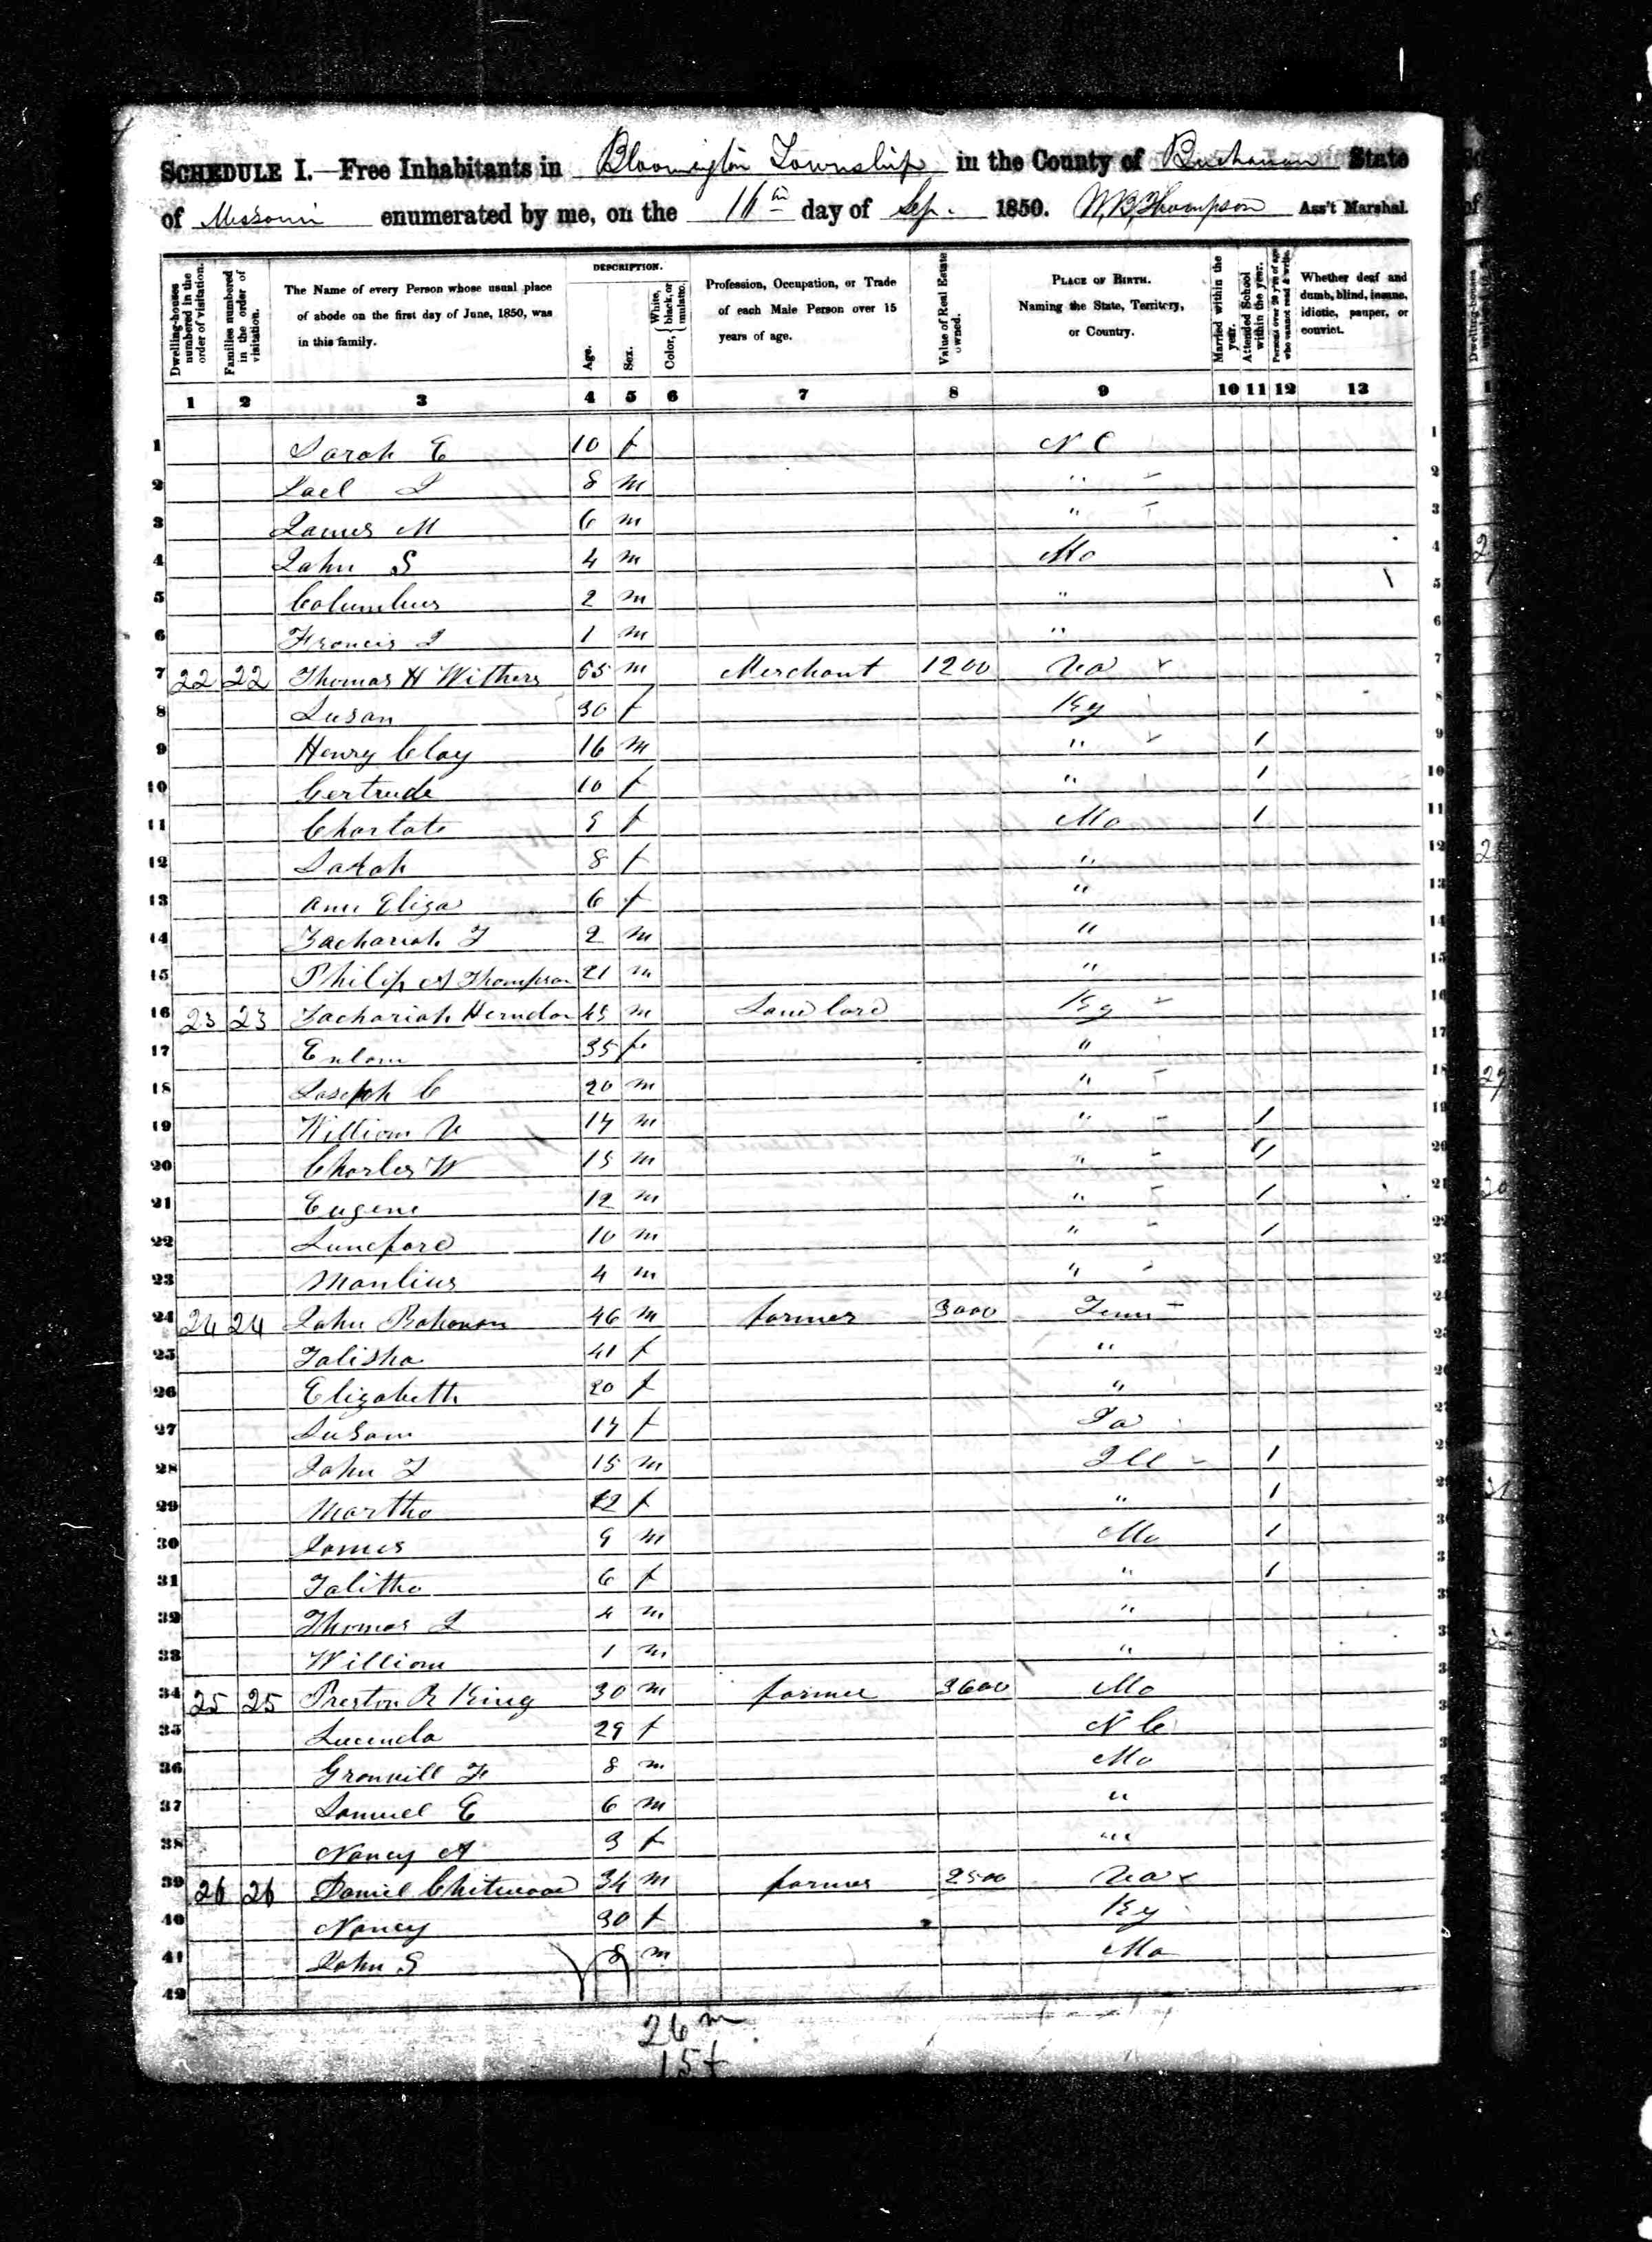 SCHEDULE I.—Free Inhabitants in Bloomington Township in the County of Buchanan State
of Missouri enumerated by me, on the 16th day of Sep. 1850. W. B. Thompson Ass't Marshal.
Dwelling-houses numbered in the order of visitation.
Families numbered in the order of visitation.
The Name of every Person whose usual place of abode on the first day of June, 1850, was in this family.
DESCRIPTION.
Age.
Sex.
Color, { White, black, or mulatto.
Profession, Occupation, or Trade of each Male Person over 15 years of age.
Value of Real Estate owned.
PLACE OF BIRTH. Naming the State, Territory, or Country.
Married within the year.
Attended School within the year.
Persons over 20 y'rs of age who cannot read & write.
Whether deaf and dumb, blind, insane, idiotic, pauper, or convict.
1 2 3 4 5 6 7 8 9 10 11 12 13
1 Sarah E 10 f N C
2 8 m "
3 James M 6 m "
4 John S 4 m Mo
5 Columbus 2 m "
6 Francis J 1 m "
7 22 22 Thomas H Withers 55 m Merchant 1200 Va
8 Susan 30 f Ky
9 Henry Clay 16 m " 1
10 Gertrude 10 f " 1
11 Charlote 9 f Mo 1
12 Sarah 8 f "
13 Ann Eliza 6 f "
14 Zachariah T 2 m "
15 Philip A Thompson 21 m "
16 23 23 Zachariah Herndon 45 m Landlord Ky
17 35 f "
18 Joseph C 20 m "
19 William V 17 m " 1
20 Charles W 15 m " 1
21 Eugene 12 m " 1
22 Lunsford 10 m " 1
23 Manlius 4 m "
24 24 24 John Bohanon 46 m farmer 3000 Tenn
25 Talisha 41 f "
26 Elizabeth 20 f "
27 Susan 17 f
28 John J 15 m Ill 1
29 Martha 12 f " 1
30 James 9 m Mo 1
31 Talitha 6 f " 1
32 Thomas J 4 m "
33 William 1 m "
34 25 25 Preston R King 30 m farmer 3600 Mo
35 Lucinda 29 f N C
36 Granvill F 8 m Mo
37 Samuel E 6 m "
38 Nancy A 3 f "
39 26 26 Daniel Chitwood 34 m farmer 2500 Va
40 Nancy 30 f Ky
41 John S 8 m Mo
42
26 m
15 f